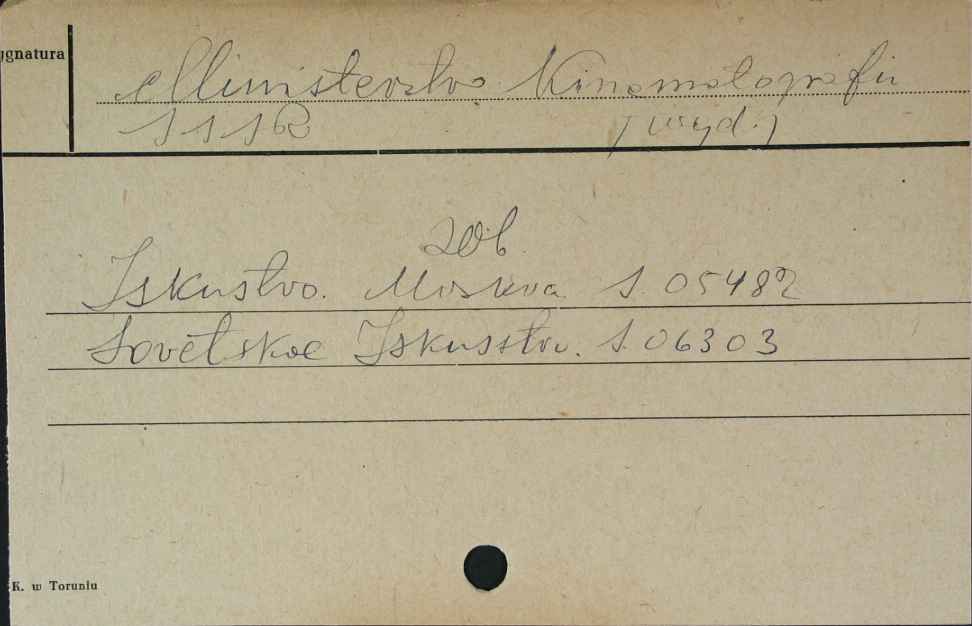 ygnatura
Ministerstvo Kinematografii
SSSR (wyd.)
zob.
Iskustvo. Moskva S. 05482
Sovetskoe Iskusstvo. S. 06303
K. w Toruniu